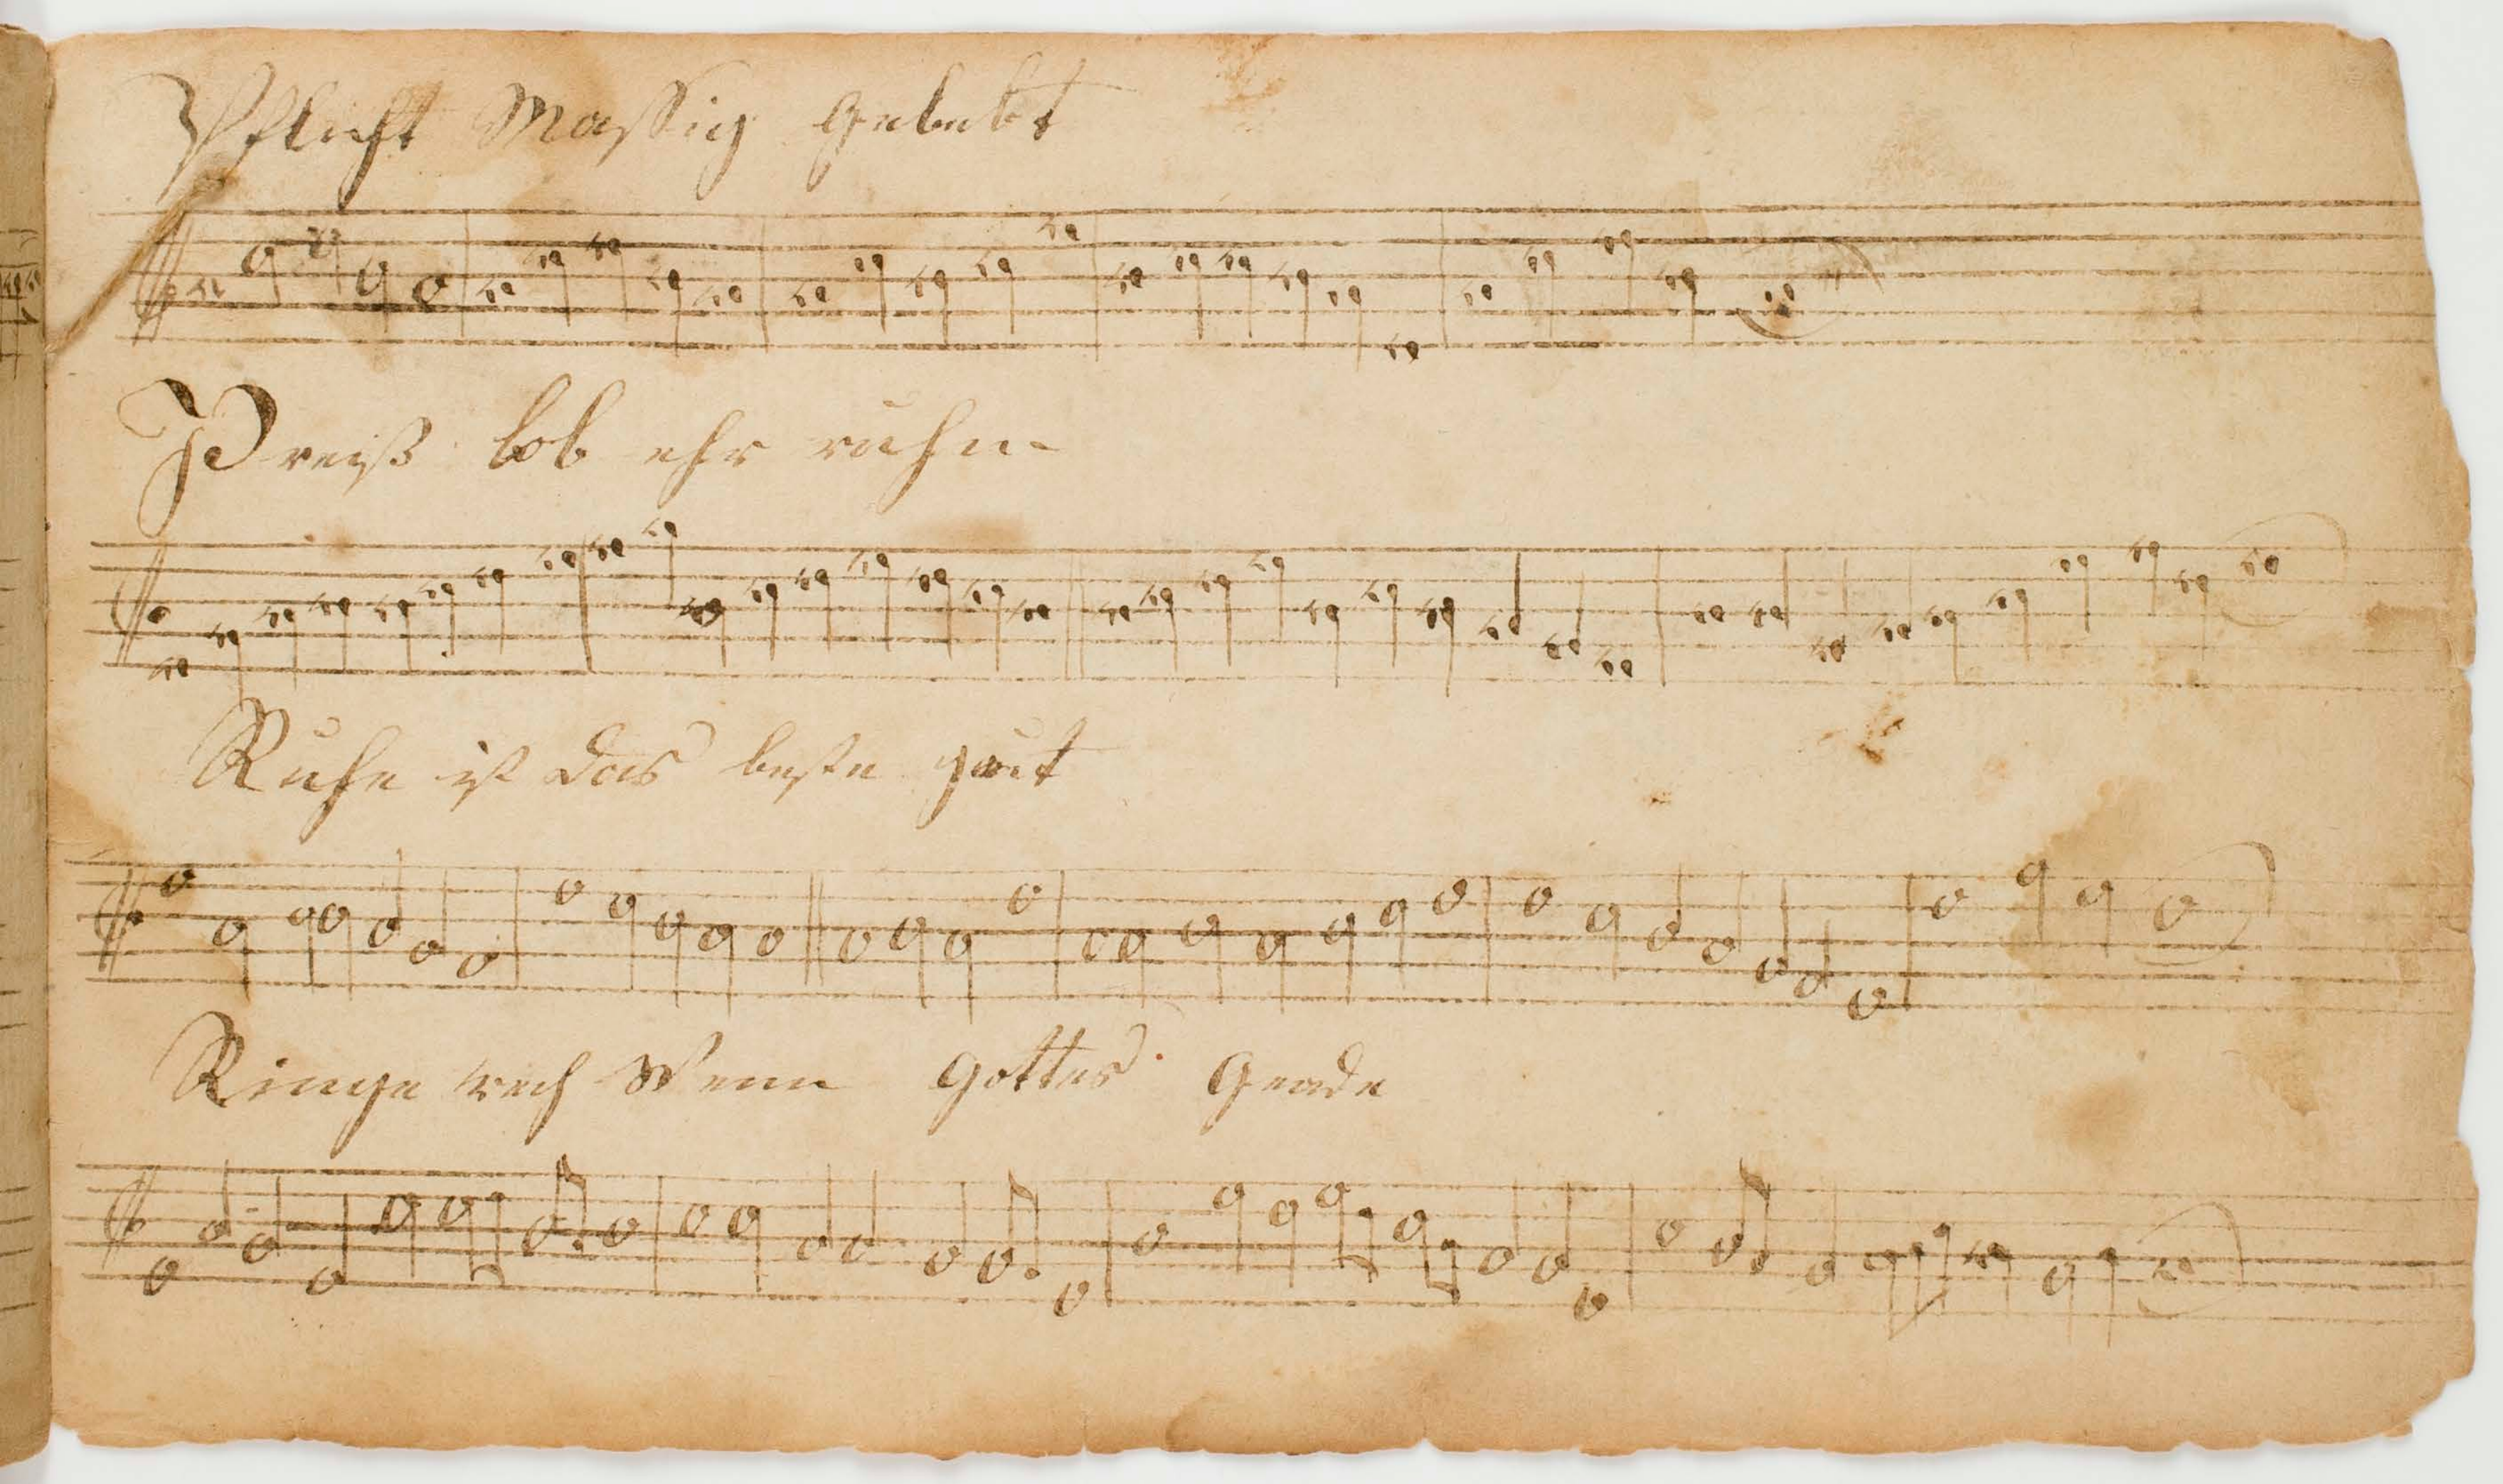 Pflicht Massig Gebetet
Preiß lob ehr ruhm
Ruhe ist das beste gut
Ringe rech Wenn Gottes Gnade